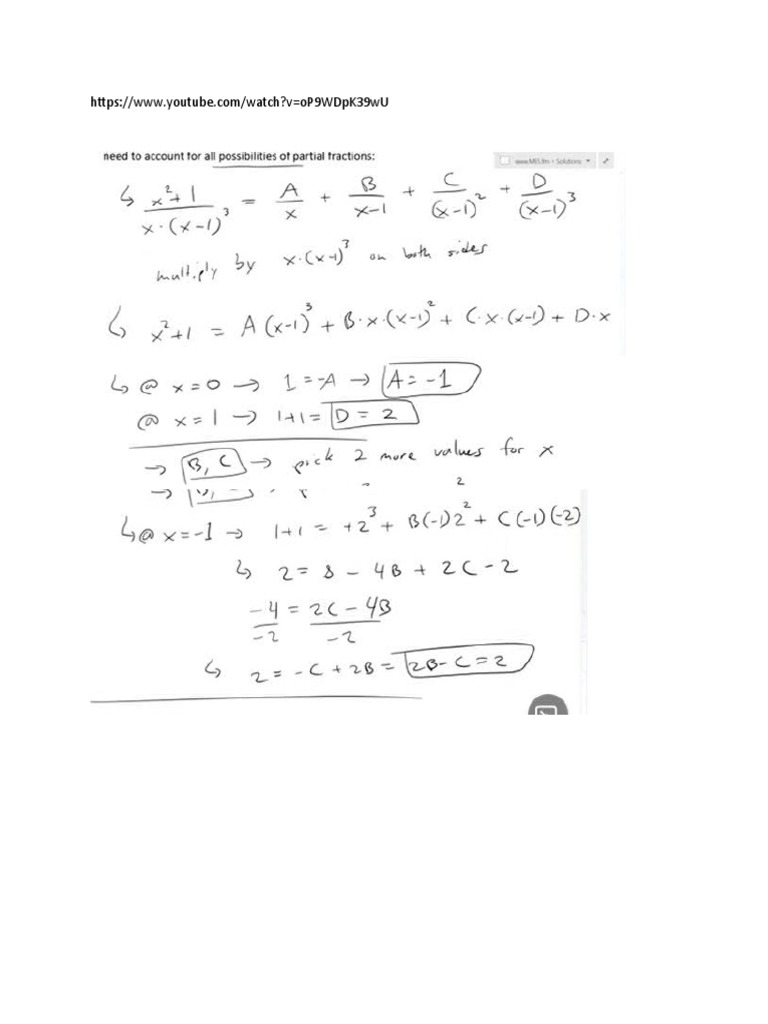 https://www.youtube.com/watch?v=oP9WDpK39wU
need to account for all possibilities of partial fractions:
www.MES.fm > Solutions
↳ (x²+1)/(x·(x-1)³) = A/x + B/(x-1) + C/(x-1)² + D/(x-1)³
multiply by x·(x-1)³ on both sides
↳ x²+1 = A(x-1)³ + B·x·(x-1)² + C·x·(x-1) + D·x
↳ @ x=0 → 1=-A → A=-1
@ x=1 → 1+1= D=2
→ B, C → pick 2 more values for x
↳@ x=-1 → 1+1 = +2³ + B(-1)2² + C(-1)(-2)
↳ 2 = 8 - 4B + 2C - 2
-4/-2 = (2C-4B)/-2
↳ 2 = -C + 2B = 2B-C=2